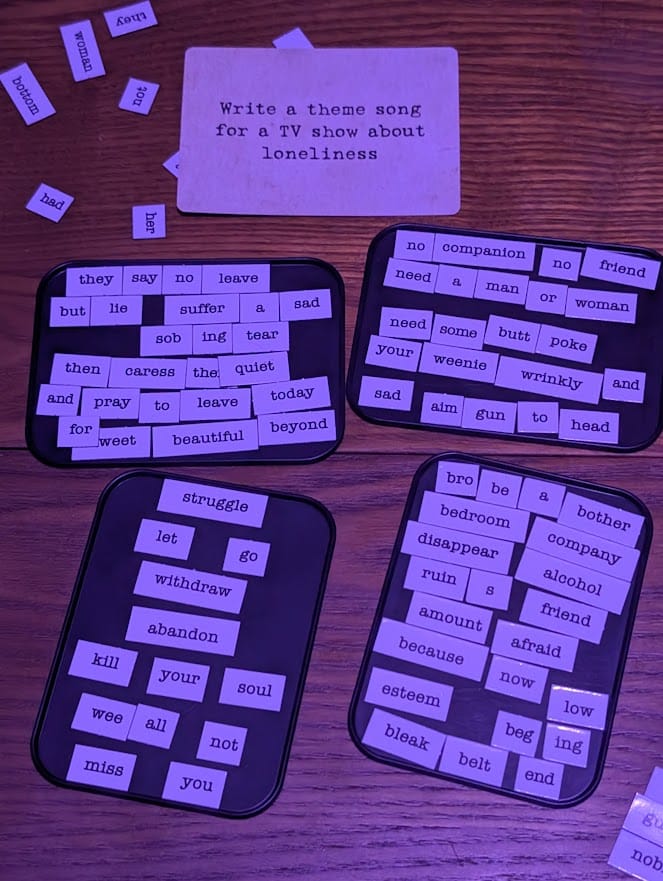 they
woman
bottom
not
had
her
Write a theme song
for a TV show about
loneliness
they say no leave
but lie suffer a sad
sob ing tear
then caress the quiet
and pray to leave today
for weet beautiful beyond
no companion no friend
need a man or woman
need some butt poke
your weenie wrinkly and
sad aim gun to head
struggle
let go
withdraw
abandon
kill your soul
wee all not
miss you
bro be a bother
bedroom company
disappear alcohol
ruin s friend
amount afraid
because now
esteem low
beg ing
bleak belt end
nob